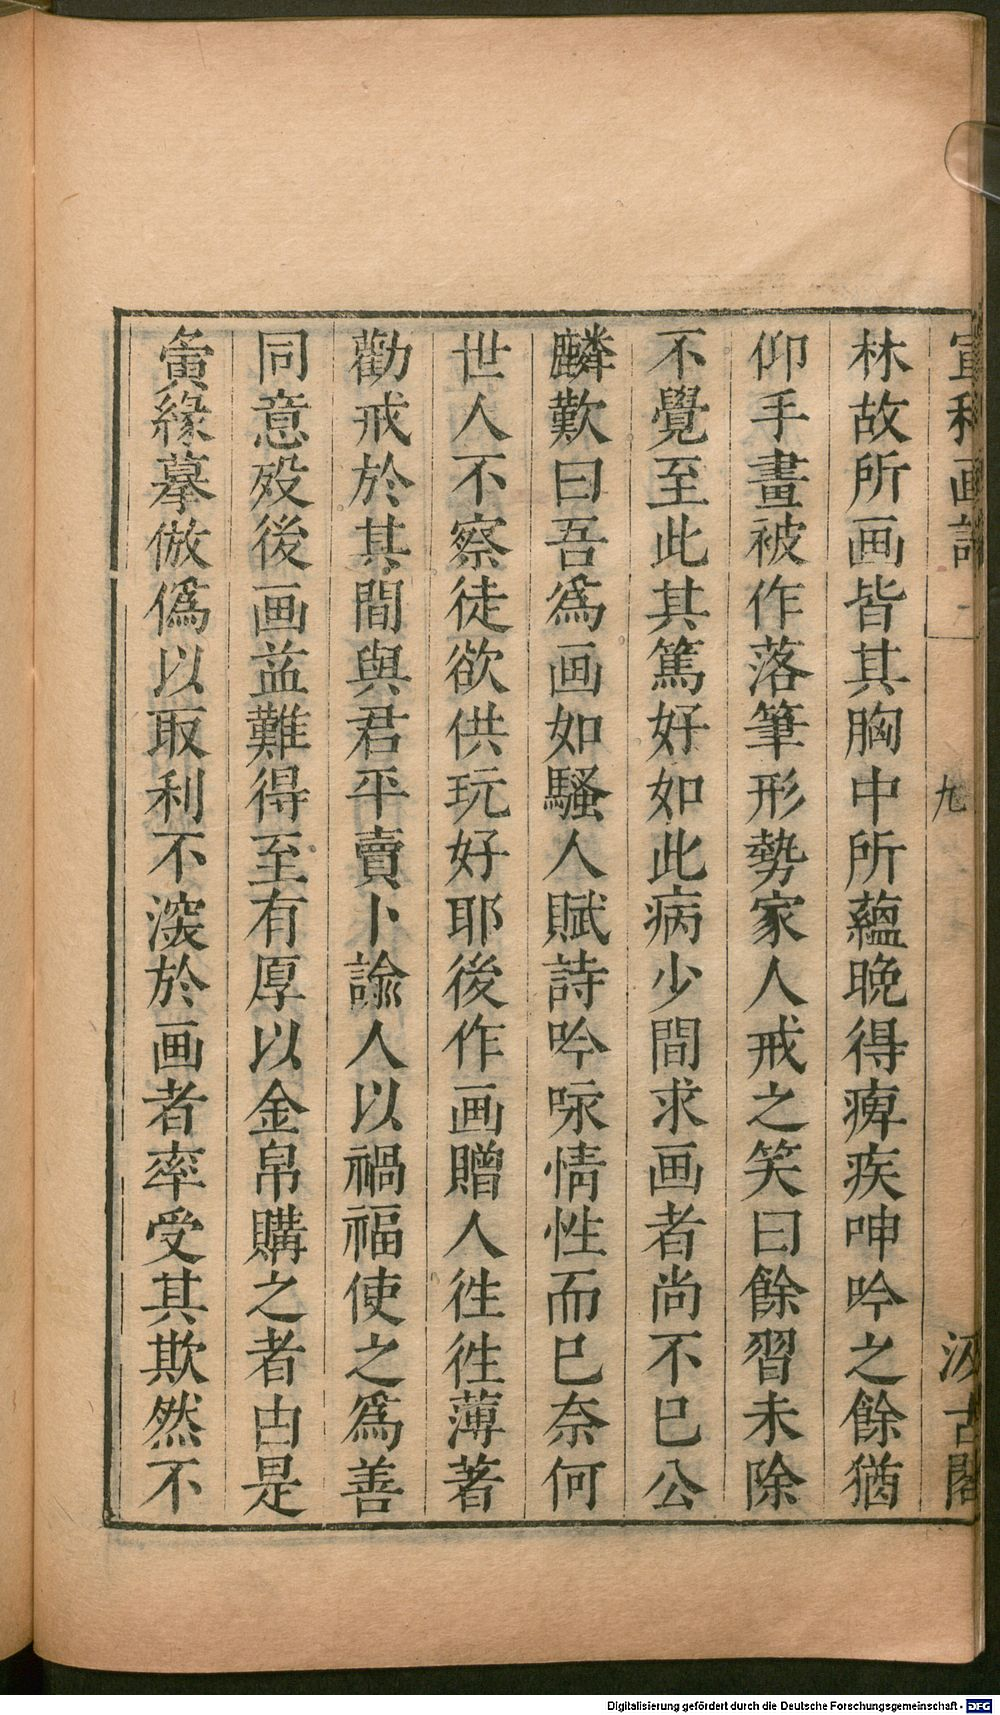 宣和画譜
九
汲古閣
林故所画皆其胸中所蘊晚得痺疾呻吟之餘猶
仰手畫被作落筆形勢家人戒之笑曰餘習未除
不覺至此其篤好如此病少間求画者尚不已公
麟歎曰吾為画如騷人賦詩吟咏情性而已奈何
世人不察徒欲供玩好耶後作画贈人徃徃薄著
勸戒於其間與君平賣卜諭人以禍福使之爲善
同意歿後画益難得至有厚以金帛購之者由是
夤緣摹倣僞以取利不深於画者率受其欺然不
Digitalisierung gefördert durch die Deutsche Forschungsgemeinschaft - DFG